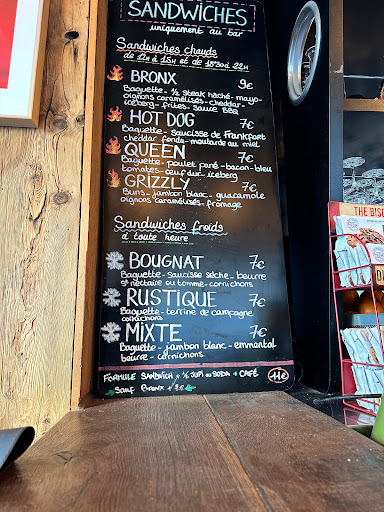 SANDWICHES
uniquement au bar
Sandwiches chauds
de 12h à 15h et de 18h30 à 22h
BRONX 9€
Baguette - ½ steak haché - mayo -
oignons caramélisés - cheddar -
iceberg - frites - sauce BBQ
HOT DOG 7€
Baguette - saucisse de Frankfort
cheddar fondu - moutarde au miel
QUEEN 7€
Baguette - poulet pané - bacon - bleu
tomates - œuf dur - iceberg
GRIZZLY 7€
Buns - jambon blanc - guacamole
oignons caramélisés - fromage
Sandwiches froids
à toute heure
BOUGNAT 7€
Baguette - saucisse sèche - beurre
st nectaire ou tomme - cornichons
RUSTIQUE 7€
Baguette - terrine de campagne
cornichons
MIXTE 7€
Baguette - jambon blanc - emmental
beurre - cornichons
FORMULE SANDWICH + ½ JUPI ou SODA + CAFÉ 11€
Sauf Bronx + 2€
THE BISC